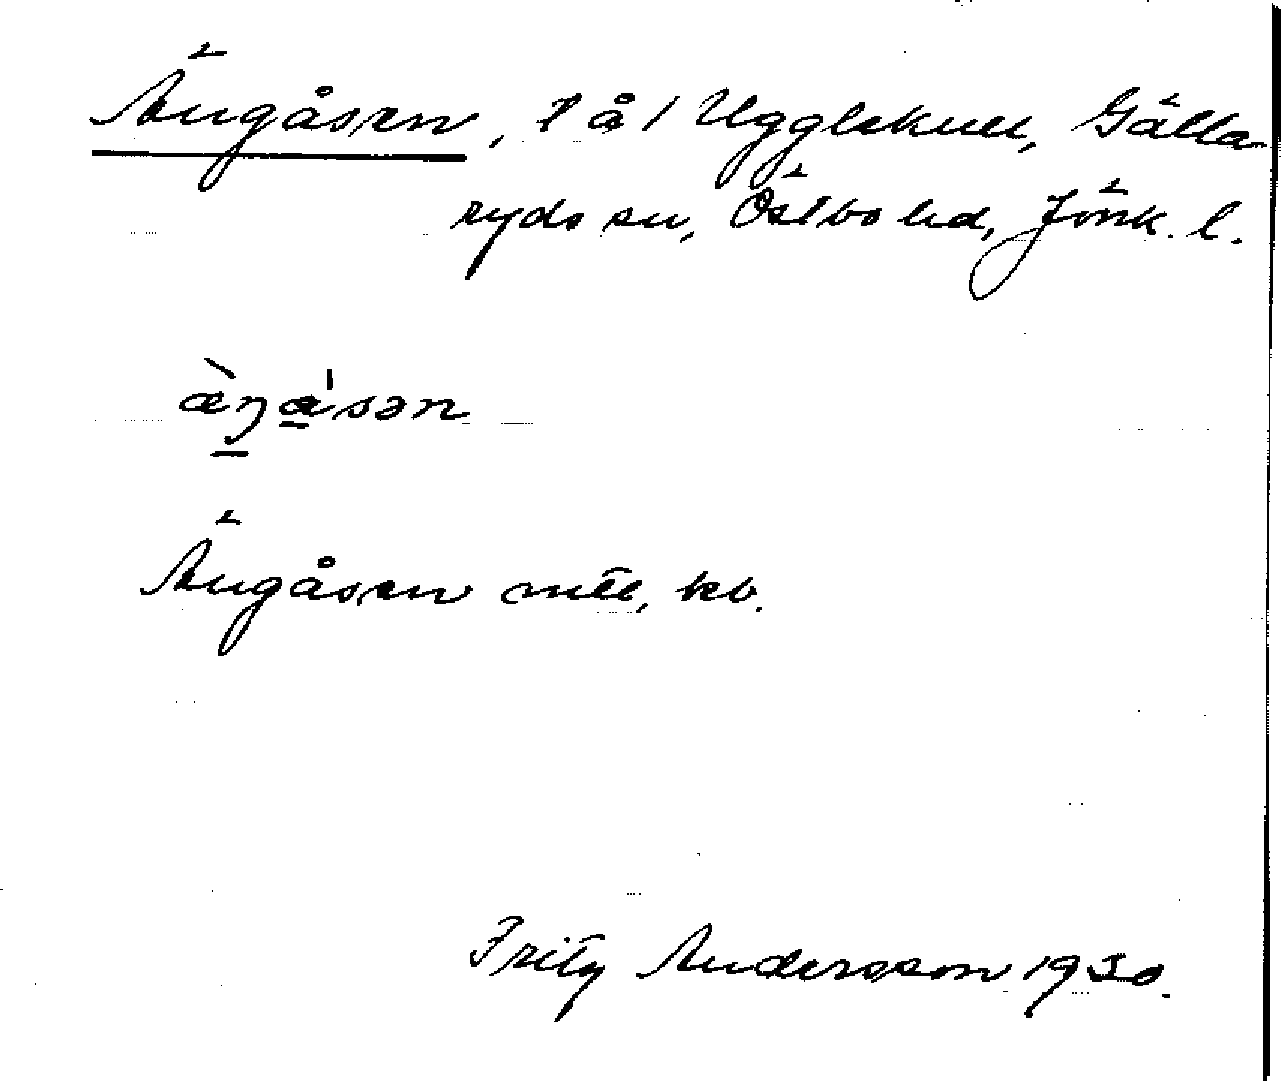 Ängåsen, l å / Ugglekull, Gälla-
ryds sn, Östbo hd, Jönk. l.
æ̀ŋa'sən
Ängåsen mtl, kb.
Fritz Andersson 1930.